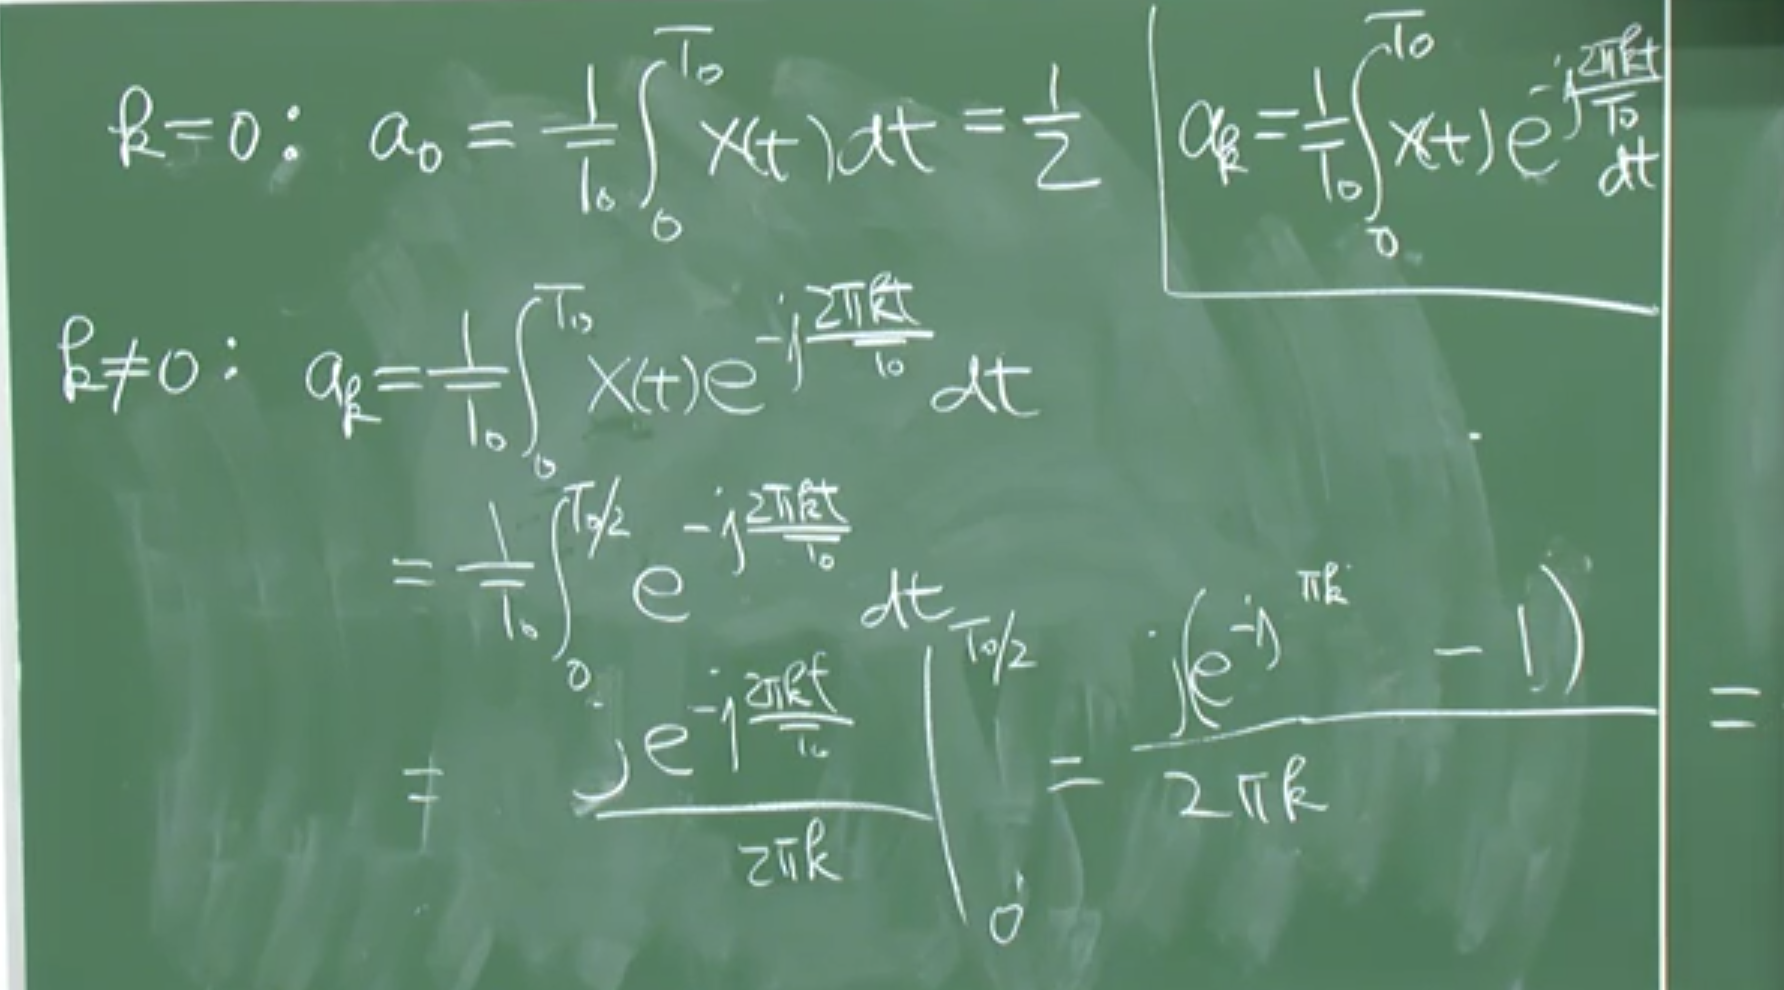 k=0: a₀ = 1/T₀ ∫₀^T₀ x(t)dt = 1/2
aₖ = 1/T₀ ∫₀^T₀ x(t) e^(-j 2πkt/T₀) dt
k≠0: aₖ = 1/T₀ ∫₀^T₀ x(t) e^(-j 2πkt/T₀) dt
= 1/T₀ ∫₀^(T₀/2) e^(-j 2πkt/T₀) dt
= j e^(-j 2πkt/T₀) / 2πk |₀^(T₀/2) = j(e^(-jπk) - 1) / 2πk =